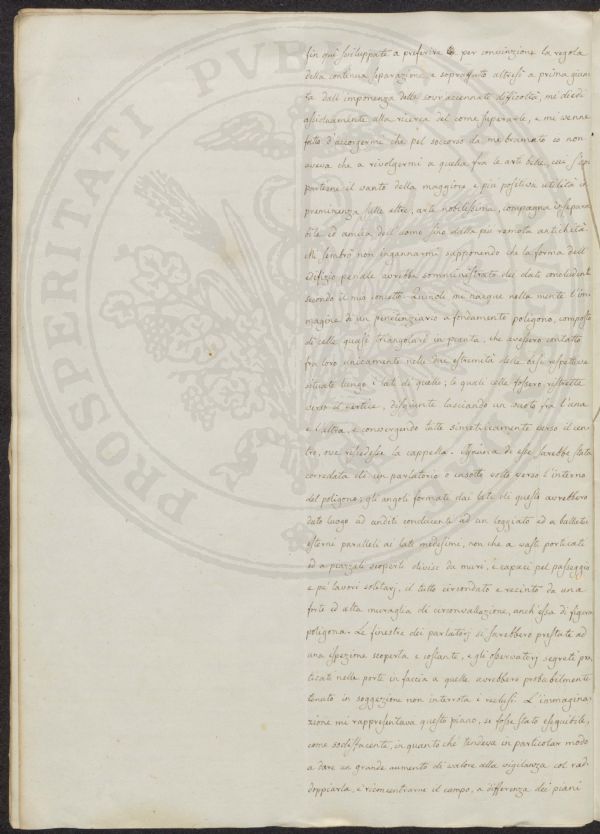 PROSPERITATI PVBL
fin quì sviluppate a preferire per convinzione la regola
della continua separazione, e sopraffatto altresì a prima giun-
ta dall'imponenza delle sovr'accennate difficoltà, mi diedi
assiduamente alla ricerca del come superarle, e mi venne
fatto d'accorgermi che pel soccorso da me bramato io non
aveva che a rivolgermi a quella fra le arti belle, cui s'ap-
partiene il vanto della maggiore e più positiva utilità in
preminenza sulle altre, arte nobilissima, compagna insepara-
bile ed amica dell'uomo fino dalla più remota antichità.
Mi sembrò non ingannarmi supponendo che la forma dell'
edifizio penale avrebbe somministrato dei dati concludenti
secondo il mio concetto. Quindi mi nacque nella mente l'im-
magine di un penitenziario a fondamento poligono, composto
di celle quasi triangolari in pianta, che avessero contatto
fra loro unicamente nelle due estremità delle basi rispettive
situate lungo i lati di quello; le quali celle fossero ristrette
verso il vertice, disgiunte lasciando un vuoto fra l'una
e l'altra, e convergendo tutte simetricamente verso il cen-
tro, ove risiedesse la cappella. Ognuna di esse sarebbe stata
corredata di un parlatorio o casotto volto verso l'interno
del poligono; gli angoli formati dai lati di questo avrebbero
dato luogo ad anditi conducenti ad un loggiato ed a ballatoi
esterni paralleli ai lati medesimi, non che a vasti porticati
ed a piazzali scoperti divisi da muri, e capaci pel passeggio
e pe' lavori solitarj, il tutto circondato e recinto da una
forte ed alta muraglia di circonvallazione, anch'essa di figura
poligona. Le finestre dei parlatorj si sarebbero prestate ad
una ispezione scoperta e costante, e gli osservatorj segreti pra-
ticati nelle porte in faccia a quelle avrebbero probabilmente
tenuto in soggezione non interrotta i reclusi. L'immagina-
zione mi rappresentava questo piano, se fosse stato eseguibile,
come sodisfacente, in quanto che tendeva in particolar modo
a dare un grande aumento di valore alla vigilanza col rad-
doppiarla, e riconcentrarne il campo, a differenza dei piani